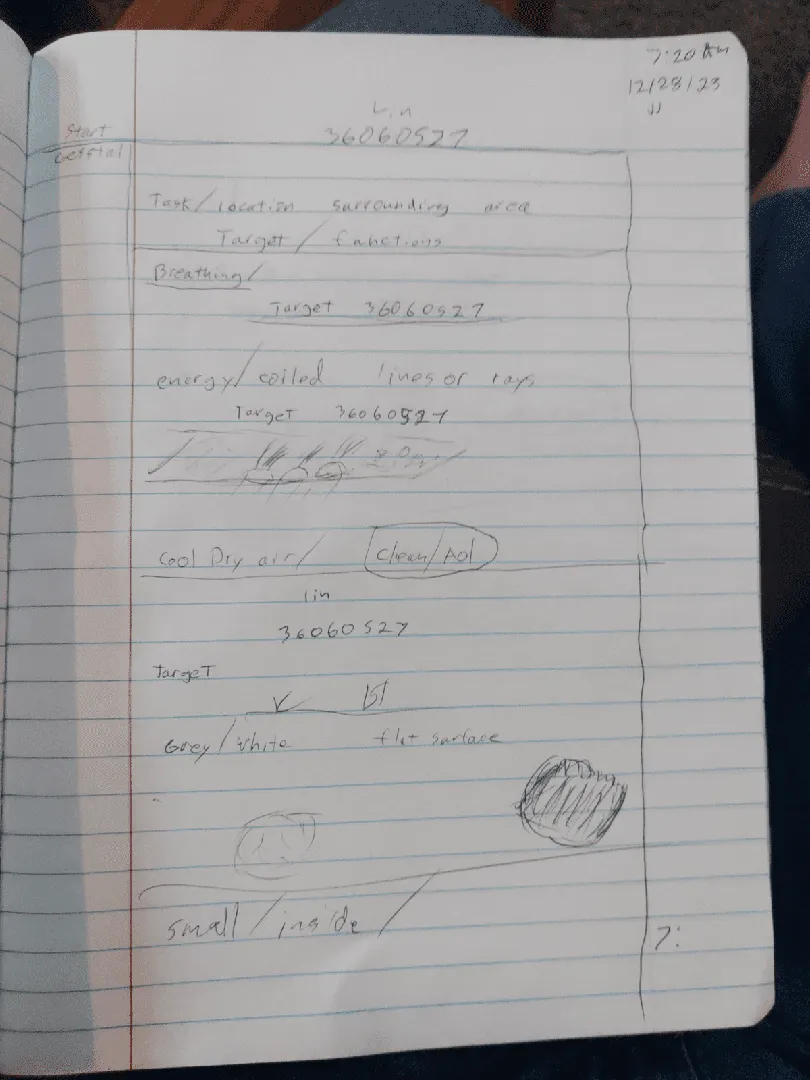 7:20 Am
12/28/23
Lin
36060527
Start
Task/location surrounding area
Target / functions
Breathing/
Target 36060527
energy/coiled lines or rays
Target 36060527
Cool Dry air/ Clean/Aol
lin
36060527
Target
Grey/white flat surface
small/inside/
7: